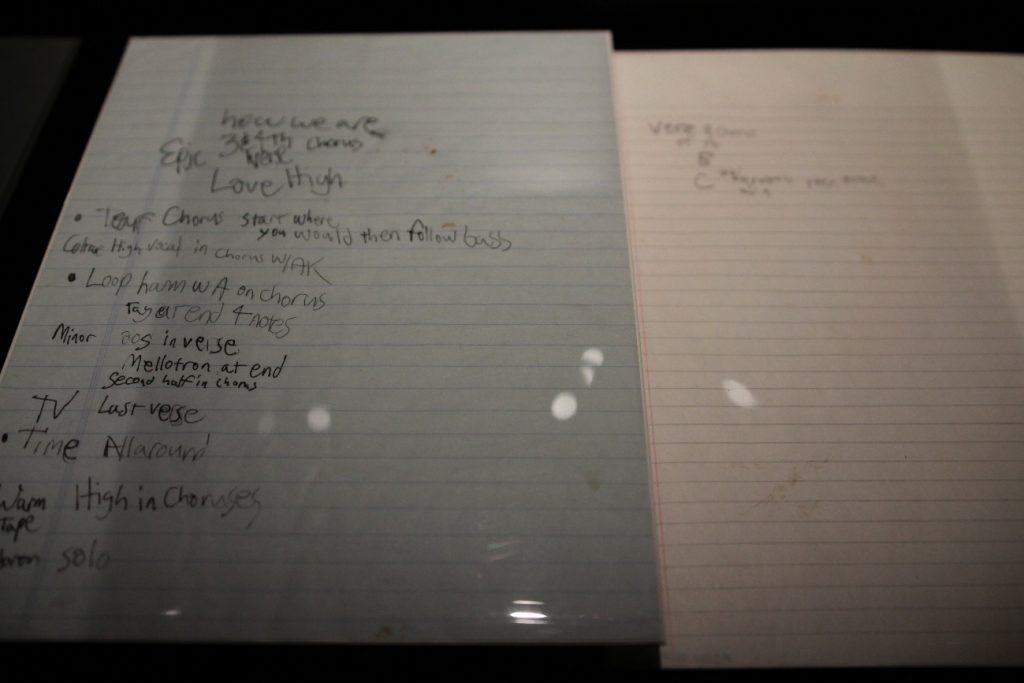 how we are
Epic 3&4th chorus
verse
Love High
• Tear Chorus start where
you would then follow bass
High vocal in chorus W/AK
• Loop harm w A on chorus
Tag at end 4 notes
Minor in verse
Mellotron at end
second half in chorus
TV Last verse
• Time All around
Warm High in Choruses
Tape
solo
Verse
B
C